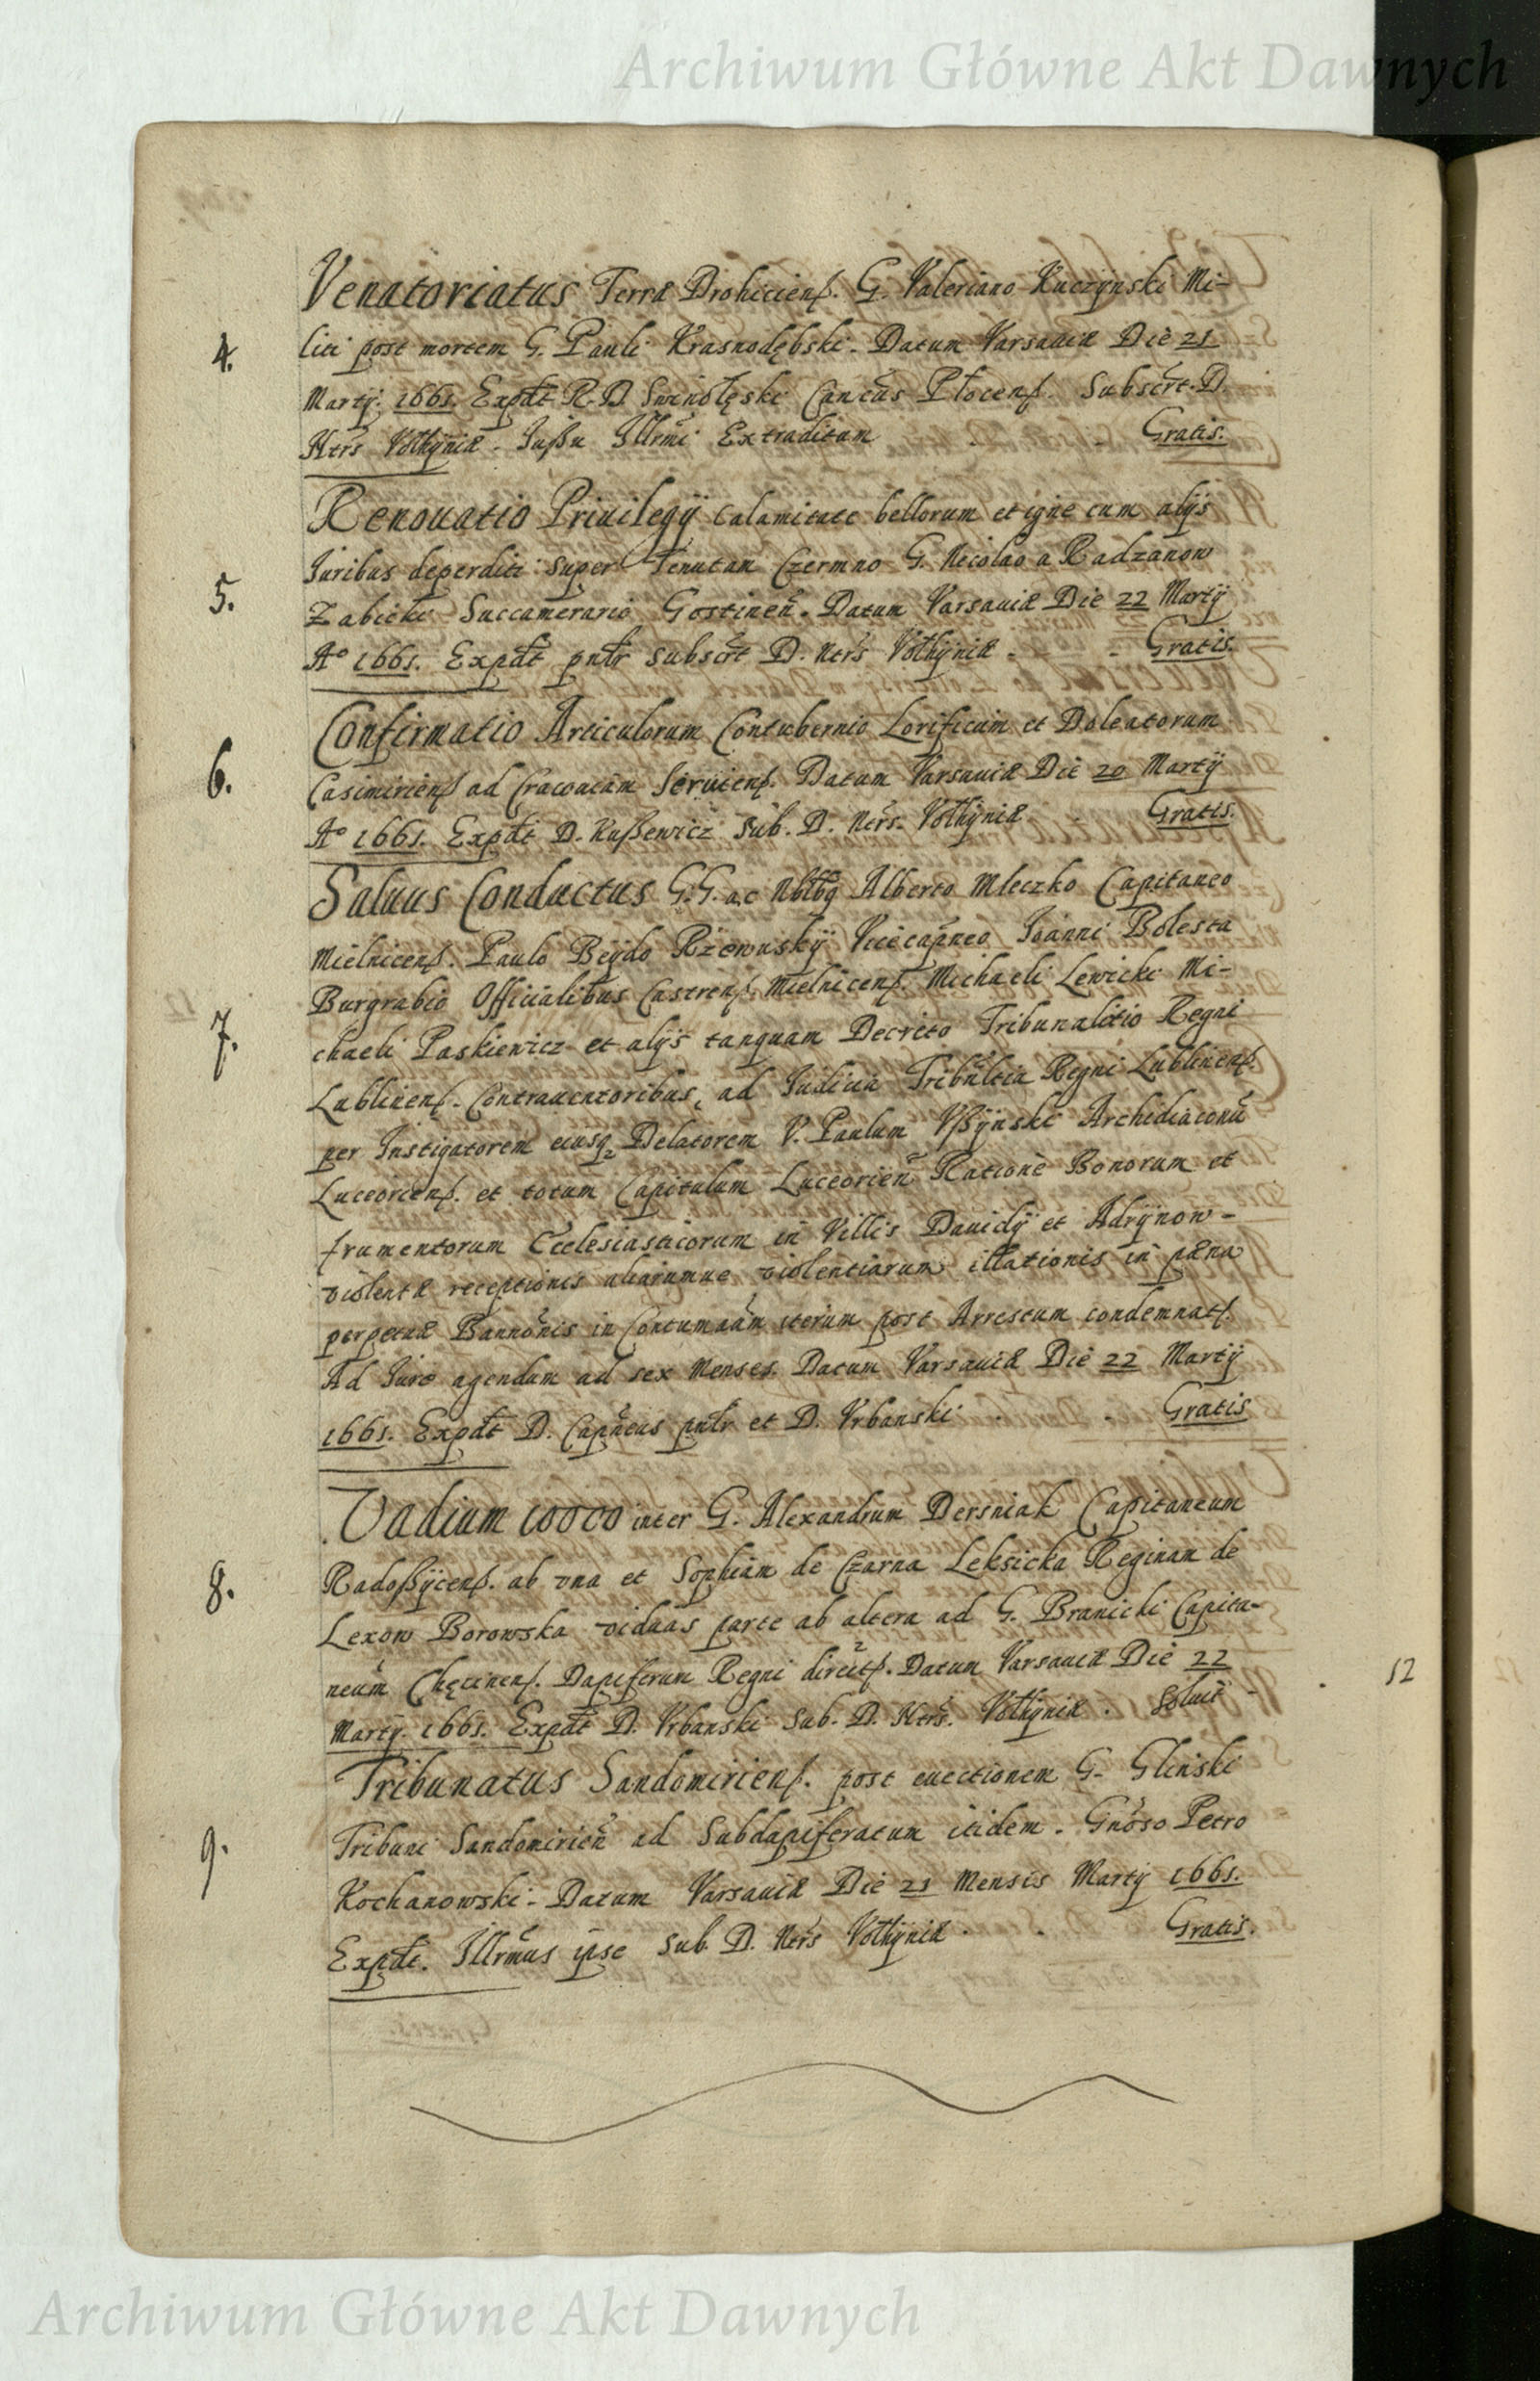 Archiwum Główne Akt Dawnych
Venatoriatus Terræ Drohiciens. G. Valeriano Kuczynski Mi-
4. liti post mortem G. Pauli Krasnodębski. Datum Varsaviæ Die 21
Martÿ. 1661. Expdt R. D. Swinołęski Cancus Płocens. Subscrt. D.
Ntrs Vołhÿniæ. Jussu Jllrmi Extraditum Gratis.
Renouatio Priuilegÿ calamitate bellorum et igne cum alÿs
5. Juribus deperditi super Tenutam Czermno G. Nicolao a Radzanow
Zabicki Succamerario Gostinen. Datum Varsauiæ Die 22 Martÿ
Aº 1661. Expdt pntr subscrt D. Ntrs Vołhÿniæ. Gratis.
Confirmatio Articulorum Contubernio Lorificum et Doleatorum
6. Casimiriens ad Cracouiam Seruiens. Datum Varsauiæ Die 20 Martÿ
Aº 1661. Expdt D. Kussewicz Sub. D. Ntrs. Vołhÿniæ Gratis.
Saluus Conductus G.G. ac Nbłbq Alberto Mleczko Capitaneo
Mielnicens. Paulo Beÿdo Rzewuskÿ Vicecapneo Joanni Bolesta
Burgrabio Officialibus Castrens. Mielnicens. Michaeli Lewicki Mi-
7. chaeli Paskiewicz et alÿs tanquam Decreto Tribunalitio Regni
Lublinens. Contrauentoribus, ad Judicia Tribultia Regni Lublinens.
per Instigatorem eiusq Delatorem V. Paulum Vssÿnski Archidiaconu
Luceoriens. et totum Capitulum Luceorien Ratione Bonorum et
frumentorum Ecclesiasticorum in Villis Dauidÿ et Adrÿnow
violentæ receptionis aliarumue violentiarum illationis in pæna
perpetuæ Bannonis in Contumaam iterum post Arrestum condemnat.
Ad Jure agendum ad sex Menses. Datum Varsauiæ Die 22 Martÿ
1661. Expdt D. Capneus pntr et D. Vrbanski Gratis
Vadium 10000 inter G. Alexandrum Dersniak Capitaneum
8. Radossÿcens. ab vna et Sophiam de Czarna Leksicka Reginam de
Lexow Borowska viduas parte ab altera ad G. Branicki Capita-
neum Chęcinens. Dapiferum Regni
direct. Datum Varsauiæ Die 22
Martÿ. 1661. Expdt D. Vrbanski Sub. D. Ntrs. Vołhÿniæ. Soluit
52
Tribunatus Sandomiriens. post euectionem G. Glinski
9. Tribuni Sandomirien ad Subdapiferatum itidem. Gnoso Petro
Kochanowski. Datum Varsauiæ Die 21 Mensis Martÿ 1661.
Expdt. Jllrmus ipse Sub D. Ntrs Vołhÿniæ Gratis.
Archiwum Główne Akt Dawnych